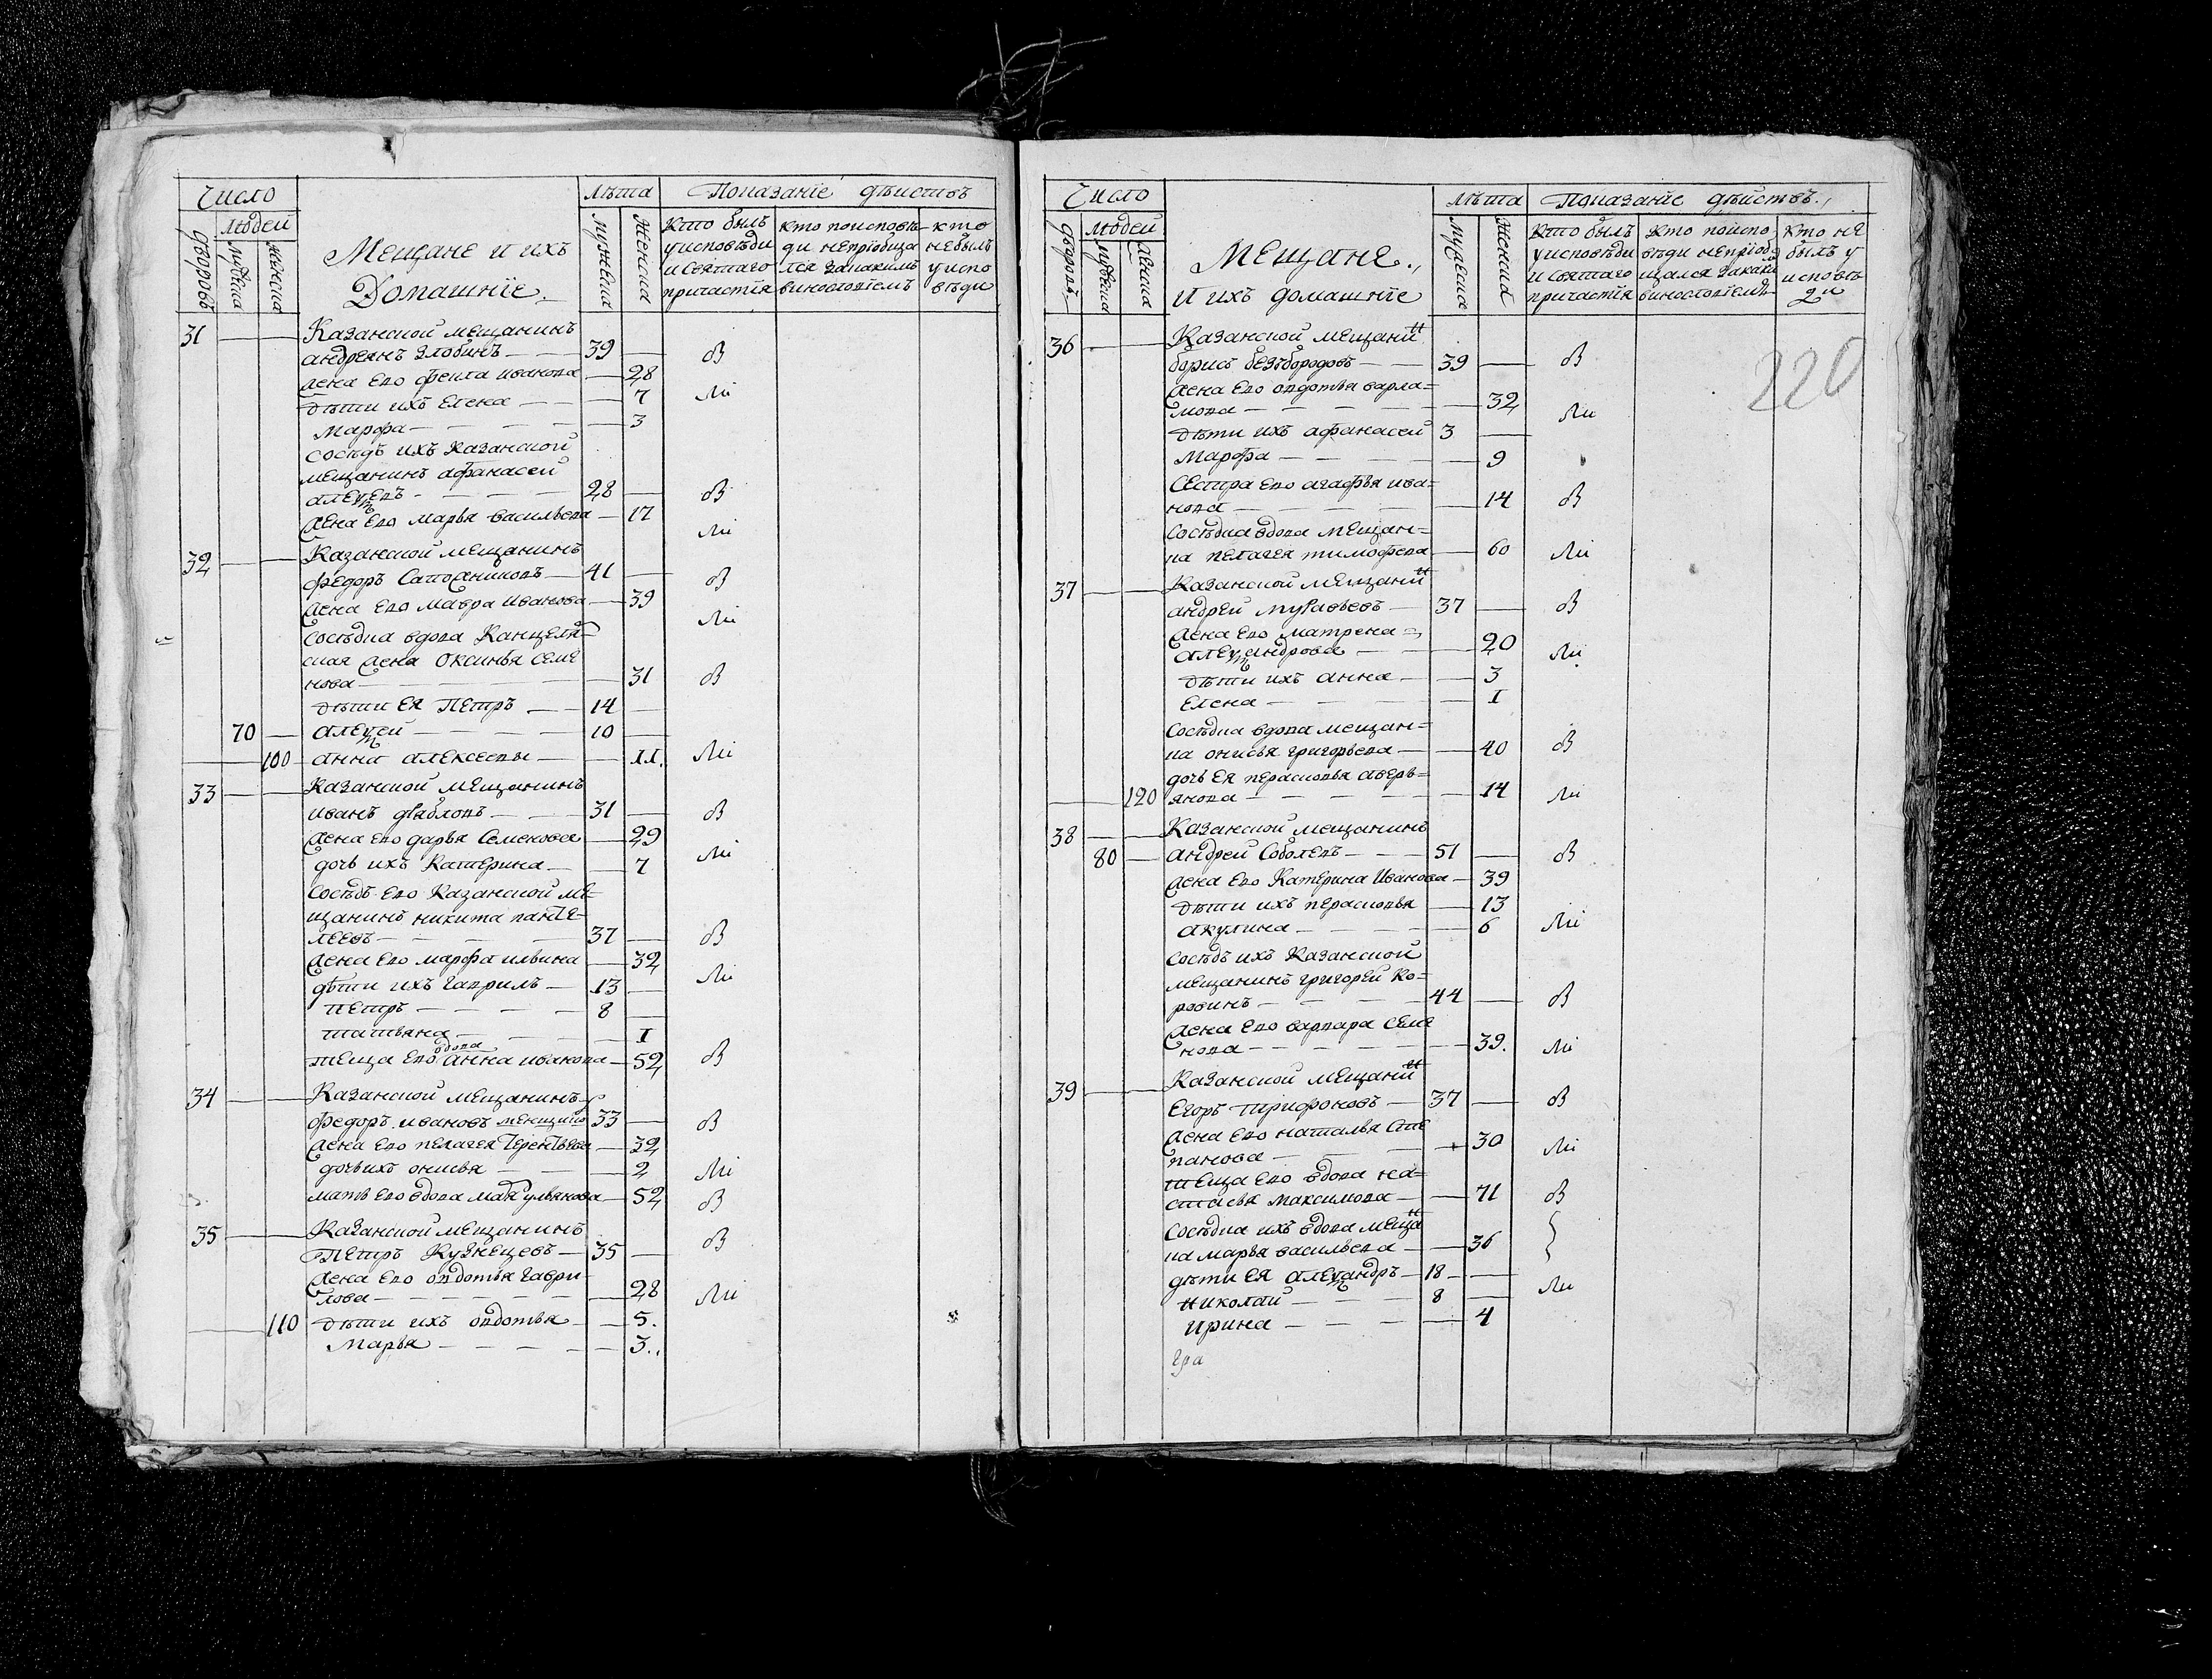 Число
Людей
дворовъ
мужеска
женска
Мещане и ихъ
Домашніе
лѣта
мужеска
женска
Показаніе дѣиствъ
кто былъ
у исповѣди
и святаго
причастія
кто поисповѣ-
ди непріобща
лся закакимъ
винословіемъ
кто
небылъ
у испо
вѣди
31 — — Казанской мещанинъ
андреянъ Злобинъ — 39 — В
жена Ево фекла иванова — 28
дѣти ихъ Елена — — 7 Ли
Марфа — — — 3
сосѣдъ ихъ казанской
мещанинъ афанасей
28 — В
жена Ево марья васильева — 17 Ли
32 — — Казанской мещанинъ
федоръ Сапожниковъ — 41 — В
жена Ево мавра иванова — 39 Ли
сосѣдка вдова Канцеля
ская жена Оксинья семе
нова — — 31 В
дѣти Ея Петръ — 14 —
70 — алеѯей — — 10 —
100 анна алексеевы — — 11. Ли
33 — — Казанской мещанинъ
иванъ — 31 — В
жена Ево дарья Семенова — 29
дочь ихъ Катерина — — 7 Ли
сосѣдъ Ево Казанской ме-
щанинъ никита панте-
леевъ — 37 — В
жена Ево марфа ильина — 32
дѣти ихъ гаврилъ — 13 — Ли
Петръ — — — 8 —
татьяна — — — 1
теща Ево вдова анна иванова — 52 В
34 — — Казанской мещанинъ
федоръ ивановъ менший 33 — В
жена Ево пелагея терентьева — 32
дочь ихъ онисья — — 2 Ли
мать Ево вдова марья ульянова — 52 В
35 — — Казанской мещанинъ
Петръ Кузнецовъ — 35 — В
жена Ево овдотья гаври-
лова — — — 28 Ли
110 дѣти ихъ овдотья — — 5.
Марья — — — 3.
Число
Людей
дворовъ
мужеска
женска
Мещане
и ихъ домашніе
лѣта
мужеска
женска
Показаніе дѣйствъ
кто былъ
у исповѣди
и святаго
причастія
кто поиспо
вѣди непріоб
щался закаки
винословіемъ
кто не
былъ у
исповѣ
ди
220
36 — — Казанской мещанинъ
борисъ безъбородовъ — 39 — В
жена Ево овдотья варла=
мова — — — 32 Ли
дѣти ихъ афанасей 3 —
Марфа — — — 9
Сестра Ево агафья ива=
нова — — — 14 В
сосѣдка вдова мещан=
ка пелагея тимофева — 60 Ли
37 — — Казанской мещанинъ
андрей муравьевъ — 37 — В
жена Ево матрена =
алеѯандрова — — 20 Ли
дѣти ихъ анна — — 3
Елена — — — 1
сосѣдка вдова мещан=
ка онисья григорьева — — 40 В
дочь Ея перасковья аверь=
120 янова — — — 14 Ли
38 — — Казанской мещанинъ
80 — андрей Соболевъ — 51 — В
жена Ево Катерина Иванова — 39
дѣти ихъ перасковья — 13
акулина — — — 6 Ли
сосѣдъ ихъ Казанской
мещанинъ григорей ко=
ровинъ — — 44 — В
жена Ево варвара семе
нова — — — 39. Ли
39 — — Казанской мещанинъ
Егоръ трифоновъ — 37 — В
жена Ево наталья сте
панова — — — 30 Ли
теща Ево вдова на=
стасья максимова — — 71 В
сосѣдка ихъ вдова меща
ка марья васильева — — 36
дѣти Ея алеѯандръ — 18 — Ли
николай — — 8 —
ирина — — — 4
гра